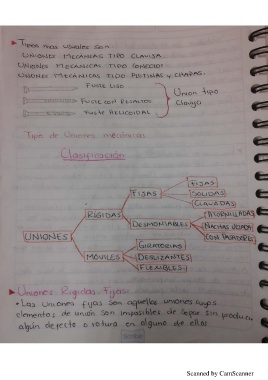 Tipos mas usuales son:
UNIONES MECANICAS TIPO CLAVIJA.
UNIONES MECANICAS TIPO CONECTOR.
UNIONES MECANICAS TIPO PLETINAS Y CHAPAS.
Fuste Liso
Fuste con Resaltos
Fuste Helicoidal
Union tipo
Clavija
Tipo de Uniones mecánicas
Clasificación
UNIONES
RÍGIDAS
MOVILES
FIJAS
DESMONTABLES
FIJAS
SOLIDAS
CLAVADAS
ATORNILLADAS
CON PASADORES
GIRATORIAS
DESLIZANTES
FLEXIBLES
Uniones Rigidas Fijas:
Las Uniones fijas son aquellas uniones cuyos
elementos de unión son imposibles de separar sin producir
algún defecto o rotura en alguno de ellos
Scanned by CamScanner